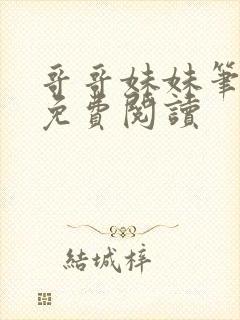 哥哥妹妹筆
免費閱讀
結城梓